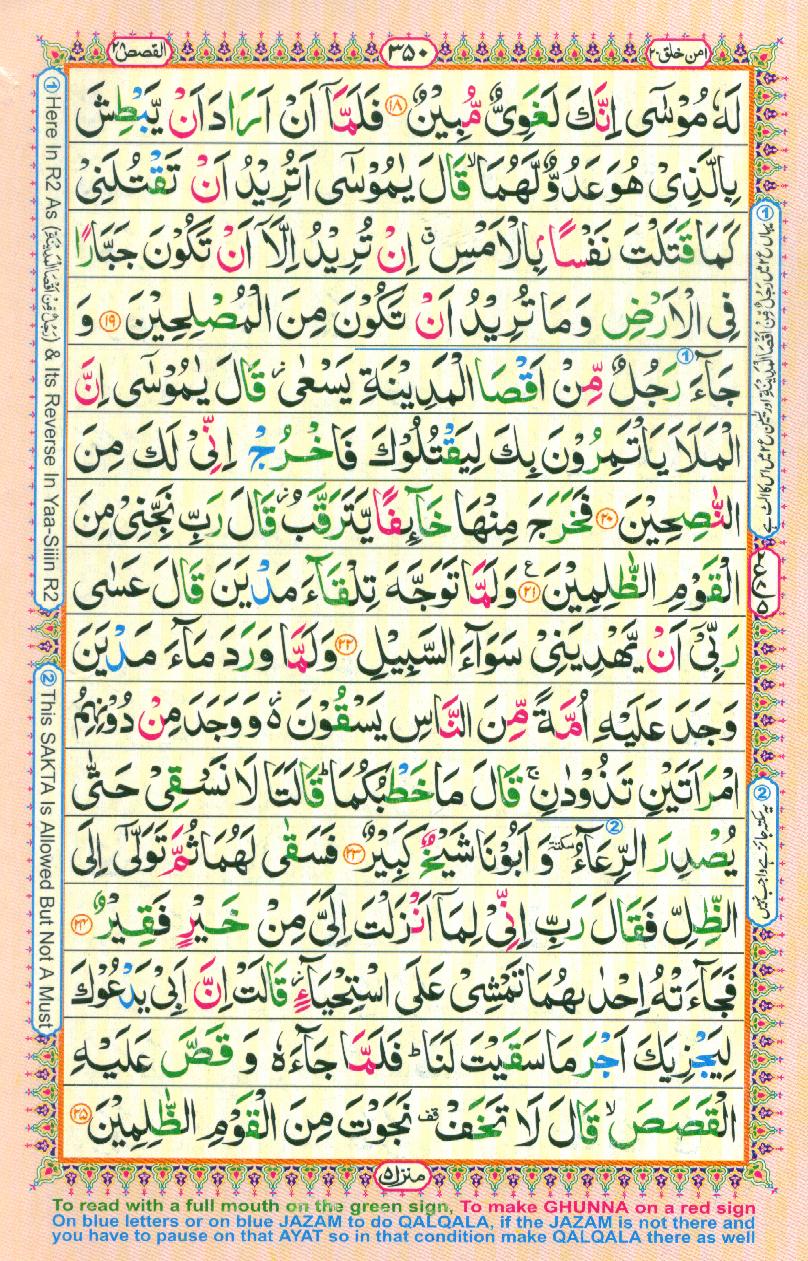 القصص ٢٨
٣٥٠
امن خلق ٢٠
لَهٗ مُوْسٰۤى اِنَّكَ لَغَوِىٌّ مُّبِيْنٌ ۱۸ فَلَمَّاۤ اَنْ اَرَادَ اَنْ يَّبْطِشَ
بِالَّذِىْ هُوَ عَدُوٌّ لَّهُمَا ۙ قَالَ يٰمُوْسٰۤى اَتُرِيْدُ اَنْ تَقْتُلَنِىْ
كَمَا قَتَلْتَ نَفْسًۢا بِالْاَمْسِ ۖ اِنْ تُرِيْدُ اِلَّاۤ اَنْ تَكُوْنَ جَبَّارًا
فِى الْاَرْضِ وَ مَا تُرِيْدُ اَنْ تَكُوْنَ مِنَ الْمُصْلِحِيْنَ ۱۹ وَ
جَآءَ رَجُلٌ مِّنْ اَقْصَا الْمَدِيْنَةِ يَسْعٰى ز قَالَ يٰمُوْسٰۤى اِنَّ
الْمَلَاَ يَاْتَمِرُوْنَ بِكَ لِيَقْتُلُوْكَ فَاخْرُجْ اِنِّىْ لَكَ مِنَ
النّٰصِحِيْنَ ۲۰ فَخَرَجَ مِنْهَا خَآئِفًا يَّتَرَقَّبُ ز قَالَ رَبِّ نَجِّنِىْ مِنَ
الْقَوْمِ الظّٰلِمِيْنَ ۲۱ ع وَلَمَّا تَوَجَّهَ تِلْقَآءَ مَدْيَنَ قَالَ عَسٰى
رَبِّىْۤ اَنْ يَّهْدِيَنِىْ سَوَآءَ السَّبِيْلِ ۲۲ وَلَمَّا وَرَدَ مَآءَ مَدْيَنَ
وَجَدَ عَلَيْهِ اُمَّةً مِّنَ النَّاسِ يَسْقُوْنَ ۬ وَ وَجَدَ مِنْ دُوْنِهِمُ
امْرَاَتَيْنِ تَذُوْدٰنِ ۚ قَالَ مَا خَطْبُكُمَا ؕ قَالَتَا لَا نَسْقِىْ حَتّٰى
يُصْدِرَ الرِّعَآءُ سكتة وَ اَبُوْنَا شَيْخٌ كَبِيْرٌ ۲۳ فَسَقٰى لَهُمَا ثُمَّ تَوَلّٰۤى اِلَى
الظِّلِّ فَقَالَ رَبِّ اِنِّىْ لِمَاۤ اَنْزَلْتَ اِلَىَّ مِنْ خَيْرٍ فَقِيْرٌ ۲۴
فَجَآءَتْهُ اِحْدٰٮهُمَا تَمْشِىْ عَلَى اسْتِحْيَآءٍ ز قَالَتْ اِنَّ اَبِىْ يَدْعُوْكَ
لِيَجْزِيَكَ اَجْرَ مَا سَقَيْتَ لَنَا ؕ فَلَمَّا جَآءَهٗ وَ قَصَّ عَلَيْهِ
الْقَصَصَ ۙ قَالَ لَا تَخَفْ قف نَجَوْتَ مِنَ الْقَوْمِ الظّٰلِمِيْنَ ۲۵
منزل ۵
① Here In R2 As (رَجُلٌ مِّنْ اَقْصَا الْمَدِيْنَةِ) & Its Reverse In Yaa-Siiin R2
② This SAKTA Is Allowed But Not A Must
① یہاں ع ۲ میں رَجُلٌ مِّنْ اَقْصَا الْمَدِيْنَةِ اور یٰسٓ ع ۲ میں اس کا الٹ ہے
② یہ سکتہ جائز ہے واجب نہیں
To read with a full mouth on the green sign, To make GHUNNA on a red sign
On blue letters or on blue JAZAM to do QALQALA, if the JAZAM is not there and
you have to pause on that AYAT so in that condition make QALQALA there as well